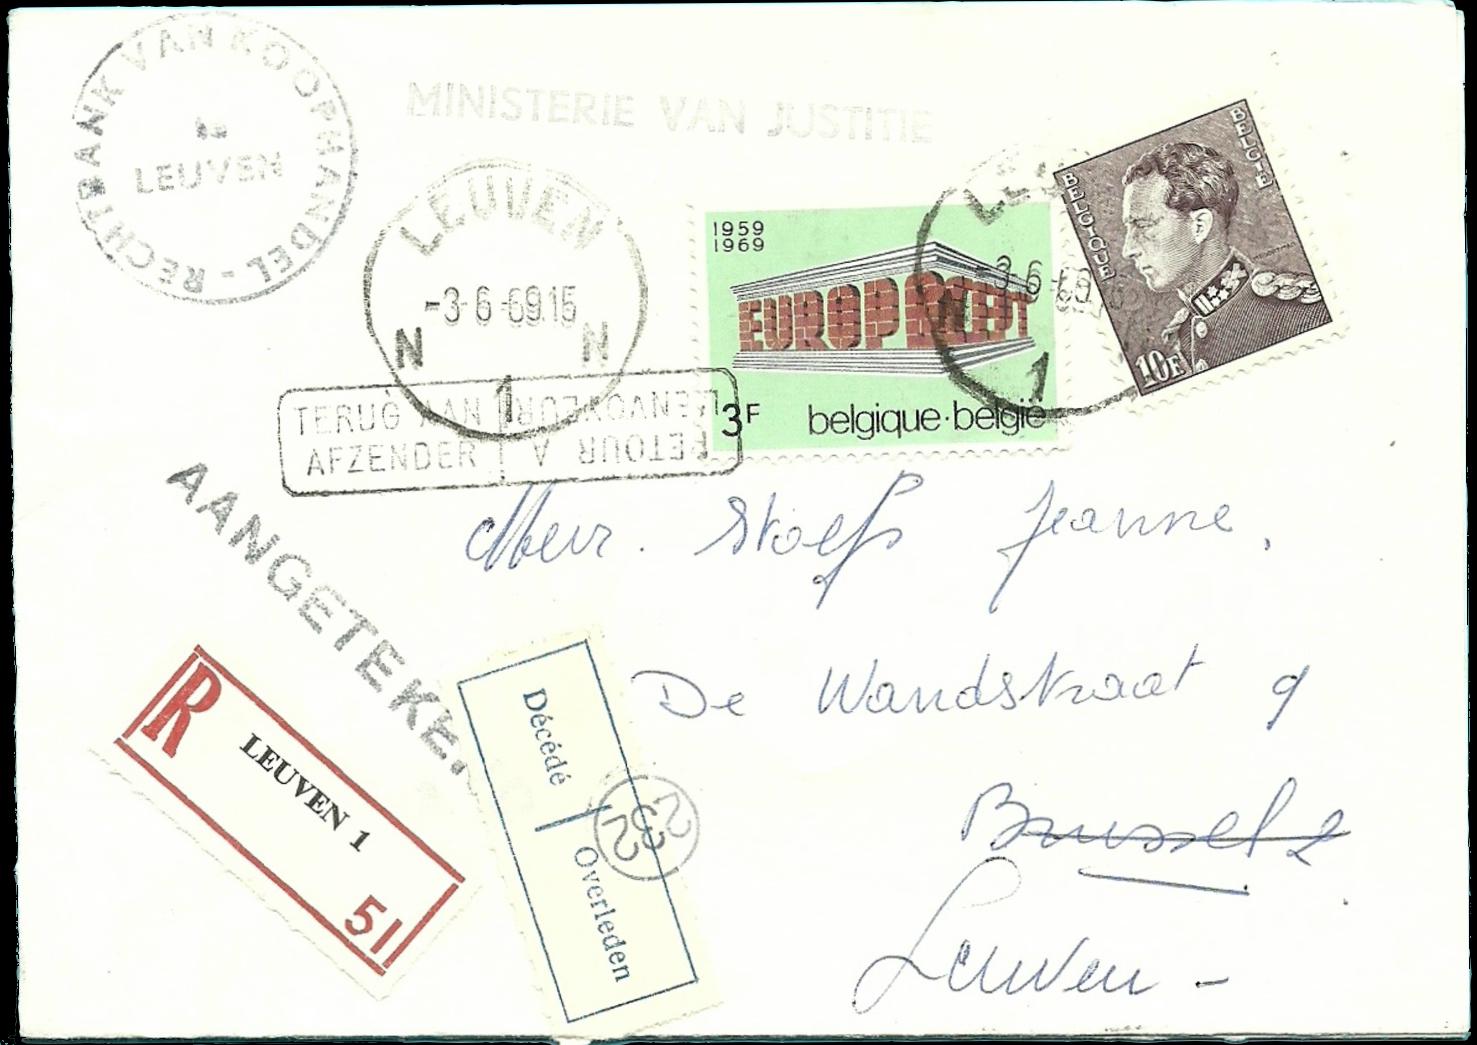 RECHTBANK VAN KOOPHANDEL -
te
LEUVEN
MINISTERIE VAN JUSTITIE
LEUVEN
-3-6-69.15
N N
1
1959
1969
EUROPA CEPT
3F belgique·belgië
-3-6-69
1
BELGIQUE
BELGIË
10F
TERUG AAN
AFZENDER
RETOUR A
L'ENVOYEUR
AANGETEKE
Mevr. Stoefs Jeanne,
De Wandstraat 9
Brussel 2
Leuven -
R
LEUVEN 1
51
Décédé
Overleden